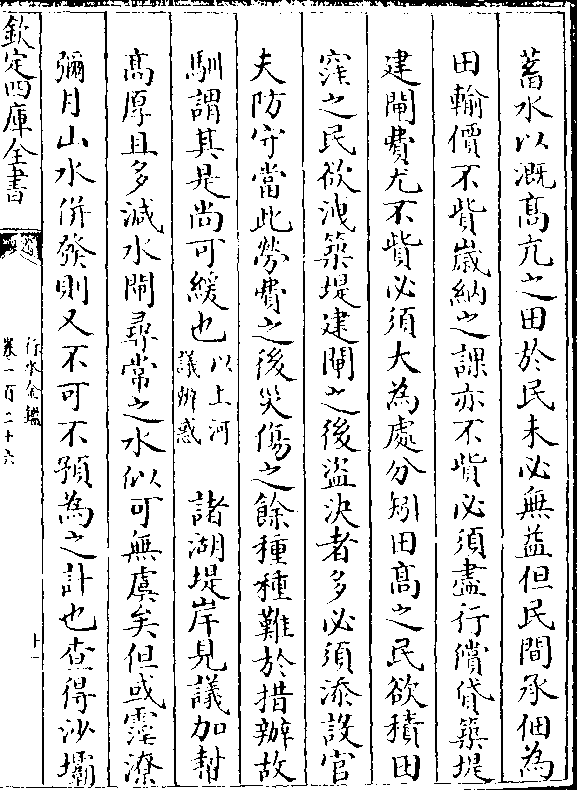 蓄水以溉髙亢之田於民未必無益但民間承佃為
田輸價不貲歲納之課亦不貲必須盡行償貸築堤
建閘費尤不貲必須大為處分矧田髙之民欲積田
窪之民欲洩築堤建閘之後盜決者多必須添設官
夫防守當此勞費之後災傷之餘種種難於措辦故
馴謂其是尚可緩也以上河議辨惑　諸湖堤岸見議加幇
髙厚且多減水閘尋常之水似可無虞矣但或霪潦
彌月山水併發則又不可不預為之計也查得沙壩
欽定四庫全書
行水金鑑
卷一百二十六
十一